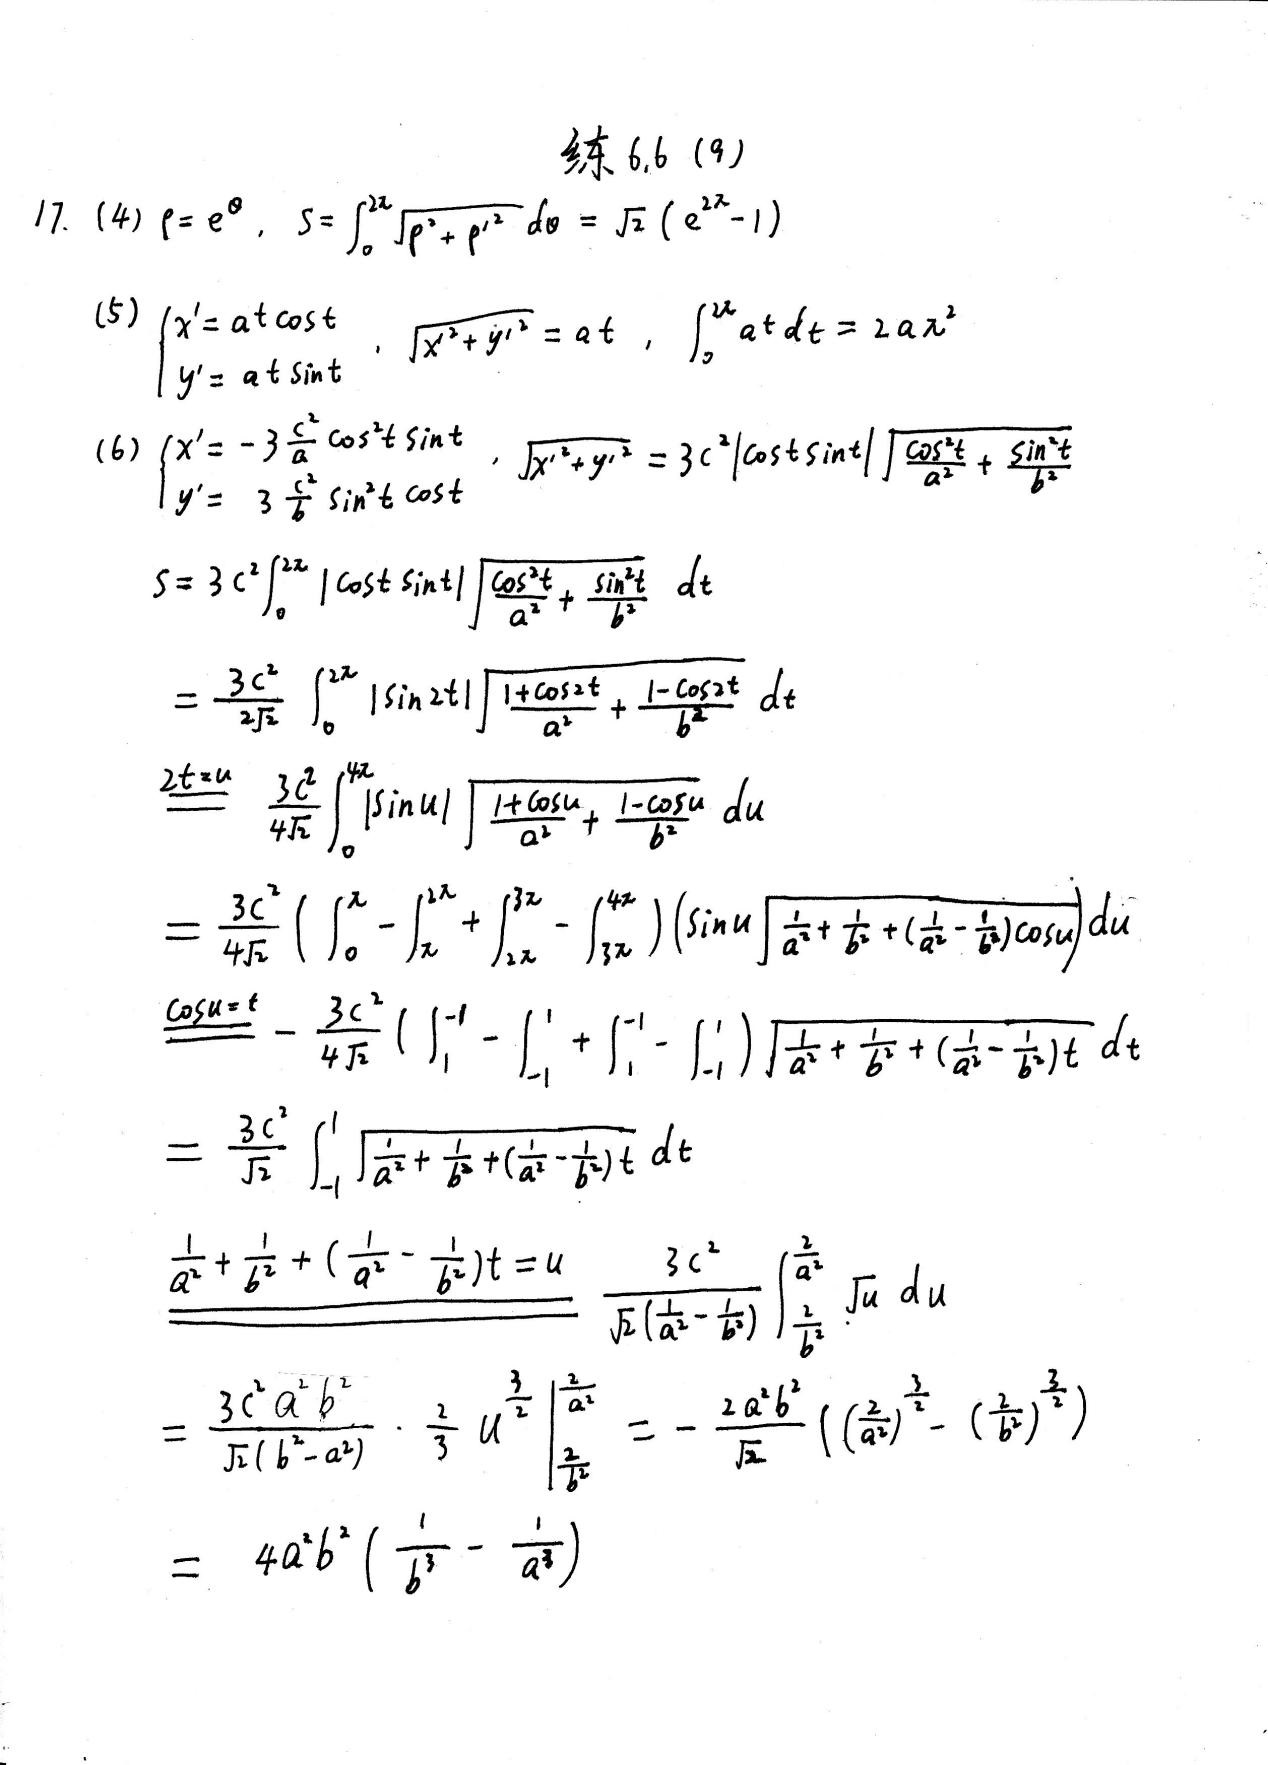 练6.6 (9)
17. (4) ρ = e^θ , S = ∫_0^{2π} √(ρ² + ρ'²) dθ = √2 (e^{2π} - 1)
(5) { x' = at cost , y' = at sint , √(x'² + y'²) = at , ∫_0^{2π} at dt = 2aπ²
(6) { x' = -3 c²/a cos²t sint , y' = 3 c²/b sin²t cost , √(x'² + y'²) = 3c² |cost sint| √(cos²t/a² + sin²t/b²)
S = 3c² ∫_0^{2π} |cost sint| √(cos²t/a² + sin²t/b²) dt
= 3c²/(2√2) ∫_0^{2π} |sin2t| √((1+cos2t)/a² + (1-cos2t)/b²) dt
2t=u == 3c²/(4√2) ∫_0^{4π} |sinu| √((1+cosu)/a² + (1-cosu)/b²) du
= 3c²/(4√2) (∫_0^π - ∫_π^{2π} + ∫_{2π}^{3π} - ∫_{3π}^{4π}) (sinu √(1/a² + 1/b² + (1/a² - 1/b²)cosu)) du
cosu=t == - 3c²/(4√2) (∫_1^{-1} - ∫_{-1}^1 + ∫_1^{-1} - ∫_{-1}^1) √(1/a² + 1/b² + (1/a² - 1/b²)t) dt
= 3c²/√2 ∫_{-1}^1 √(1/a² + 1/b² + (1/a² - 1/b²)t) dt
1/a² + 1/b² + (1/a² - 1/b²)t = u == 3c²/(√2(1/a² - 1/b²)) ∫_{2/b²}^{2/a²} √u du
= 3c²a²b²/(√2(b²-a²)) · 2/3 u^{3/2} |_{2/b²}^{2/a²} = - 2a²b²/√2 ((2/a²)^{3/2} - (2/b²)^{3/2})
= 4a²b² (1/b³ - 1/a³)